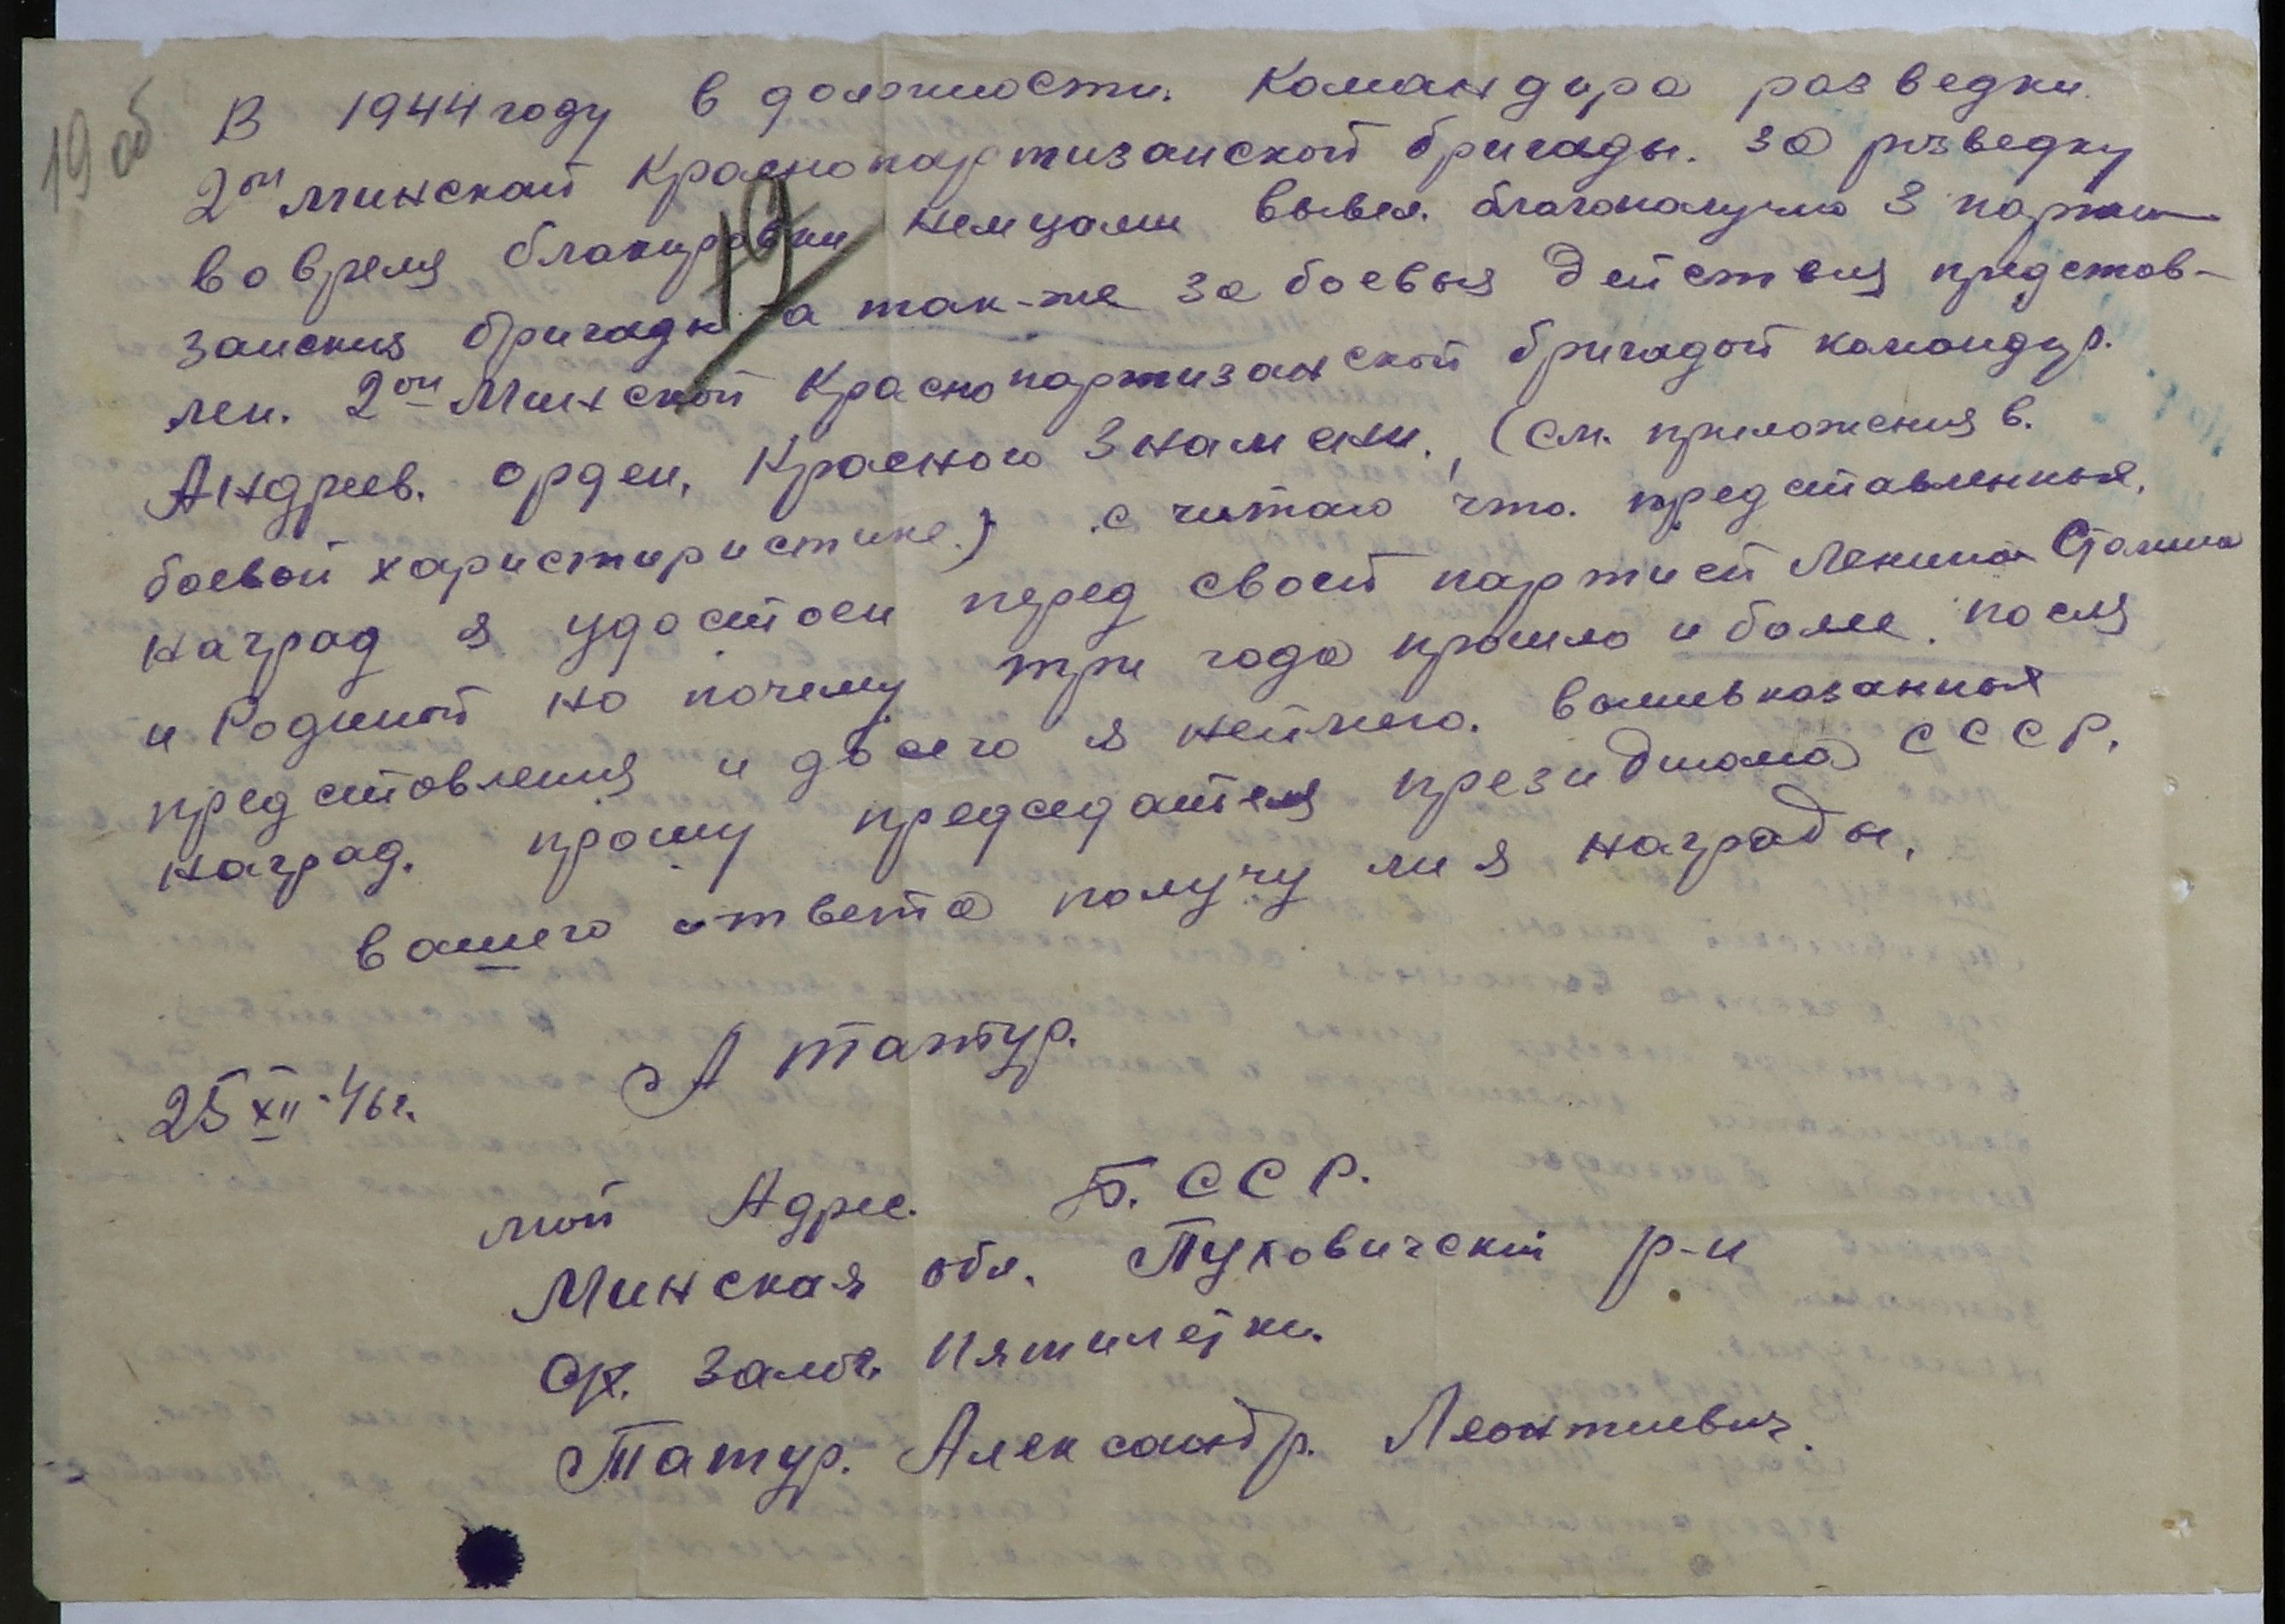 19 об
В 1944 году в должности. Командира разведки.
2ой Минской Краснопартизанской бригады. за розведку
вовремя блакировки немцами вывел. благополучно 3 парти-
занския бригады а так-же за боевыя действия представ-
лен. 2ой Минской Краснопартизанской бригадой командир.
Андреев. орден, Красного Знамени., (см. приложения в.
боевой харистиристике.) считаю что. представленных,
наград я удостоен перед своей партией Ленина Сталина
и Родиной но почему три года прошло и более. посля
представления и досего я неймею. вышевказанных
наград. прошу председателя президиома СССР,
вашего ответа получу ли я награды,
19
А татур.
25 XII-46г.
мой Адрес. Б. ССР.
Минская обл. Пуховичский р-н
Татур. Александр. Леонтиевич.